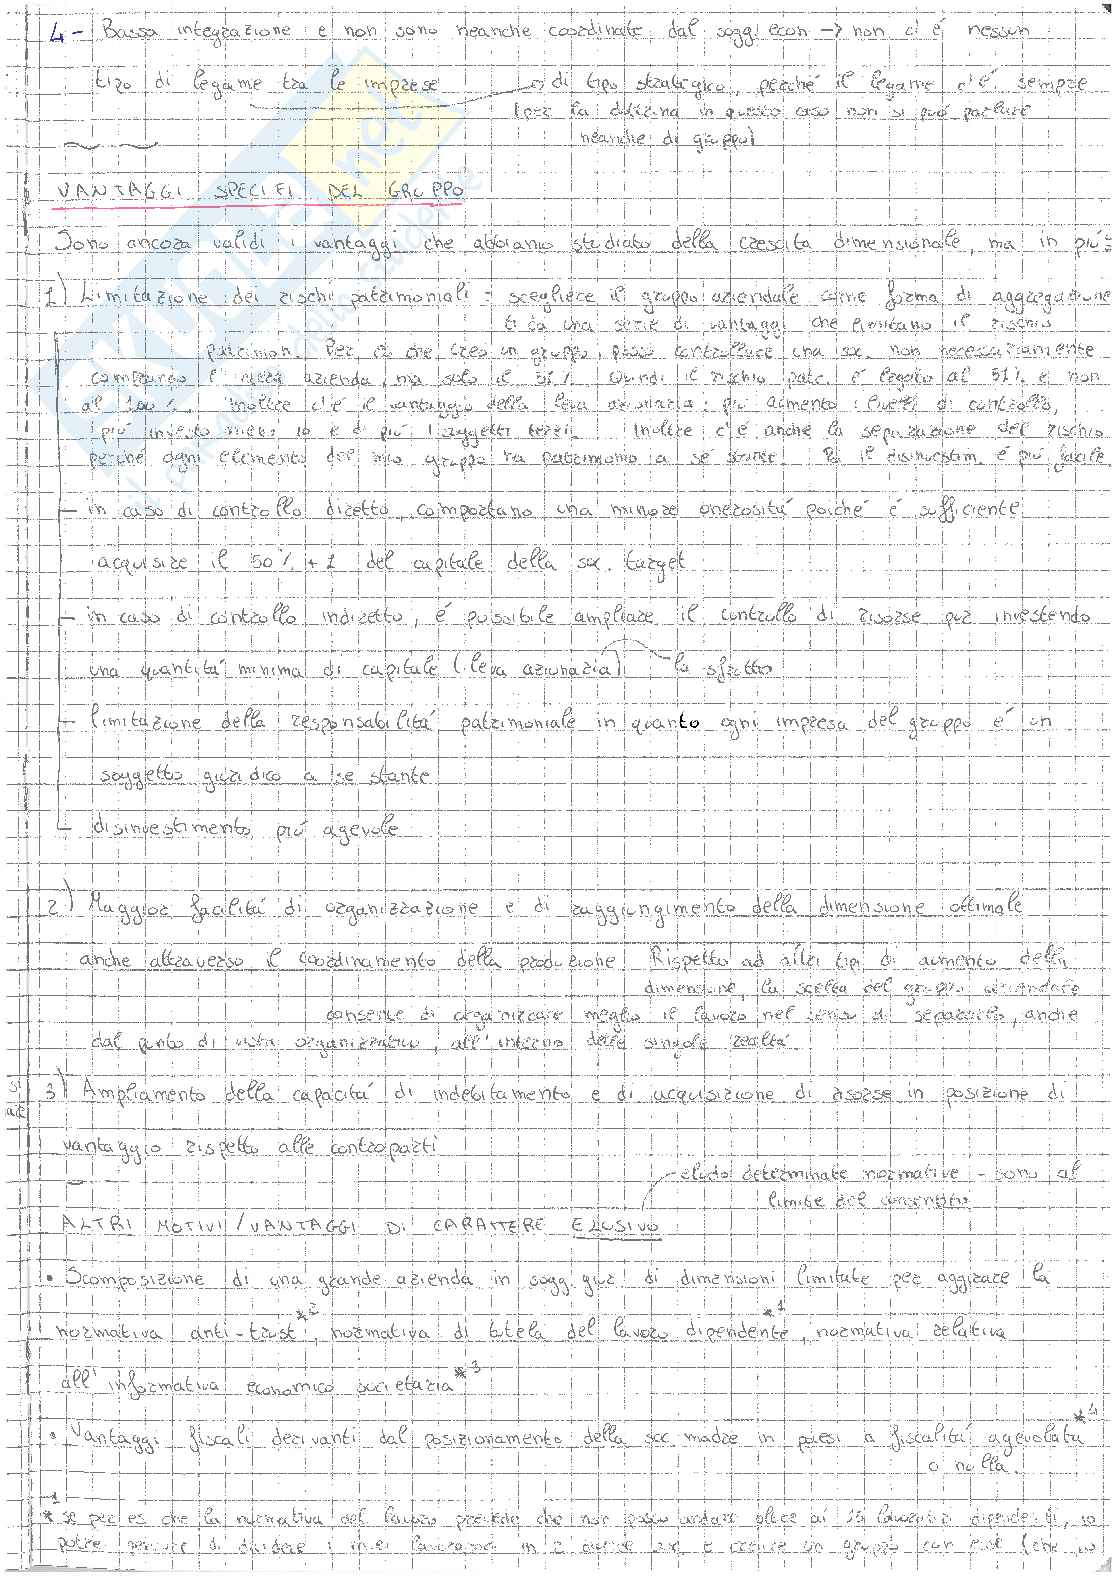 4- Bassa integrazione e non sono neanche coordinate dal sogg. econ → non ci é nessun
tipo di legame tra le imprese → di tipo strategico, perché il legame c'é sempre
(per la dottrina in questo caso non si può parlare
neanche di gruppo)
VANTAGGI SPECIFI DEL GRUPPO
Sono ancora validi i vantaggi che abbiamo studiato della crescita dimensionale, ma in più:
1) Limitazione dei rischi patrimoniali: scegliere il gruppo aziendale come forma di aggregazione
ti da una serie di vantaggi che limitano il rischio
patrimon. Per ciò che creo un gruppo, posso controllare una soc. non necessariamente
comprando l'intera azienda, ma solo il 51%. Quindi il rischio patr. é legato al 51% e non
al 100%. Inoltre c'é il vantaggio della leva azionaria: più aumento i livelli di controllo,
più investo meno io e di più i soggetti terzi. Inoltre c'é anche la separazione del rischio
perché ogni elemento del mio gruppo ha patrimonio a sé stante. Poi il disinvestim. é più facile.
- in caso di controllo diretto, comportano una minore onerositá poiché é sufficiente
acquisire il 50% +1 del capitale della soc. target
- in caso di controllo indiretto, é possibile ampliare il controllo di risorse pur investendo
una quantitá minima di capitale (leva azionaria) la sfrutto
- limitazione della responsabilitá patrimoniale in quanto ogni impresa del gruppo é un
soggetto giuridico a se stante
- disinvestimento più agevole
2) Maggior facilitá di organizzazione e di raggiungimento della dimensione ottimale
anche attraverso il coordinamento della produzione. Rispetto ad altri tipi di aumento della
dimensione, la scelta del gruppo aziendale
consente di organizzare meglio il lavoro nel senso di separarlo, anche
dal punto di vista organizzativo, all'interno delle singole realtá.
3) Ampliamento della capacitá di indebitamento e di acquisizione di risorse in posizione di
vantaggio rispetto alle controparti
eludo determinate normative - sono al
limite del consentito
ALTRI MOTIVI/VANTAGGI DI CARATTERE ELUSIVO
• Scomposizione di una grande azienda in sogg. giur. di dimensioni limitate per aggirare la
normativa anti-trust*2, normativa di tutela del lavoro dipendente*1, normativa relativa
all'informativa economico societaria*3
• Vantaggi fiscali derivanti dal posizionamento della soc madre in paesi a fiscalitá agevolata*4
o nulla.
*1 se per es che la normativa del lavoro prevede che non posso andare oltre ai 15 lavoratori dipendenti, io
potrei pensare di dividere i miei lavoratori in 2 soc e creare un gruppo con esse (che io